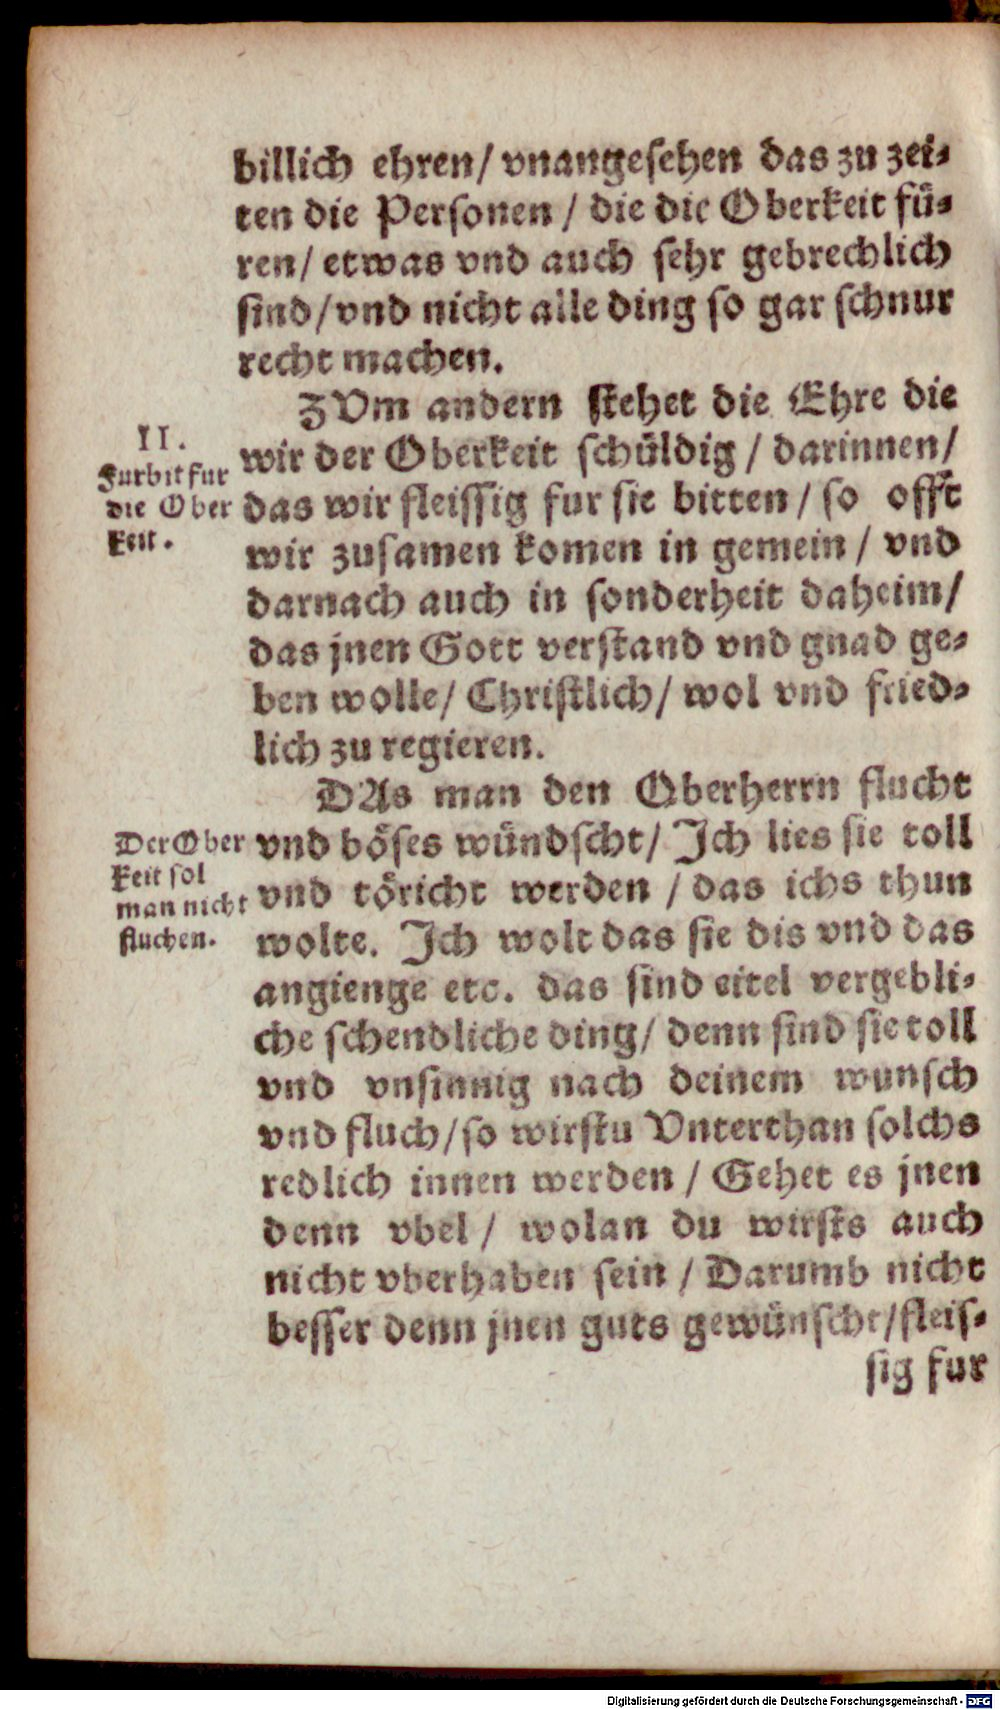 billich ehren/ vnangesehen das zu zei-
ten die Personen / die die Oberkeit fü-
ren/ etwas vnd auch sehr gebrechlich
sind/ vnd nicht alle ding so gar schnur
recht machen.
ZVm andern stehet die Ehre die
II.
Furbit fur
die Ober
keit.
wir der Oberkeit schüldig / darinnen/
das wir fleissig fur sie bitten / so offt
wir zusamen komen in gemein / vnd
darnach auch in sonderheit daheim/
das jnen Gott verstand vnd gnad ge-
ben wolle/ Christlich/ wol vnd fried-
lich zu regieren.
DAs man den Oberherrn flucht
Der Ober
keit sol
man nicht
fluchen.
vnd böses wündscht/ Ich lies sie toll
vnd töricht werden / das ichs thun
wolte. Ich wolt das sie dis vnd das
angienge etc. das sind eitel vergebli-
che schendliche ding/ denn sind sie toll
vnd vnsinnig nach deinem wunsch
vnd fluch/ so wirstu Vnterthan solchs
redlich innen werden / Gehet es jnen
denn vbel / wolan du wirsts auch
nicht vberhaben sein / Darumb nicht
besser denn jnen guts gewünscht/ fleis-
sig fur
Digitalisierung gefördert durch die Deutsche Forschungsgemeinschaft - DFG